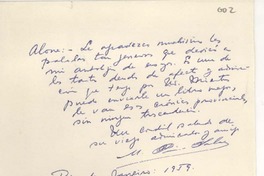 002
Alone: - Le agradezco muchísimo las
palabras tan generosas que dedicó a
mi antología de ensayos. Es una deu
da tanto desde de afecto y admira
ción que tengo por Ud. Mientras
puedo enviarle un libro mejor,
le van esas crónicas provinciales,
sin mayor trascendencia.
Un cordial saludo de
su viejo admirador y amigo
M.
Rio de Janeiro: 1959.